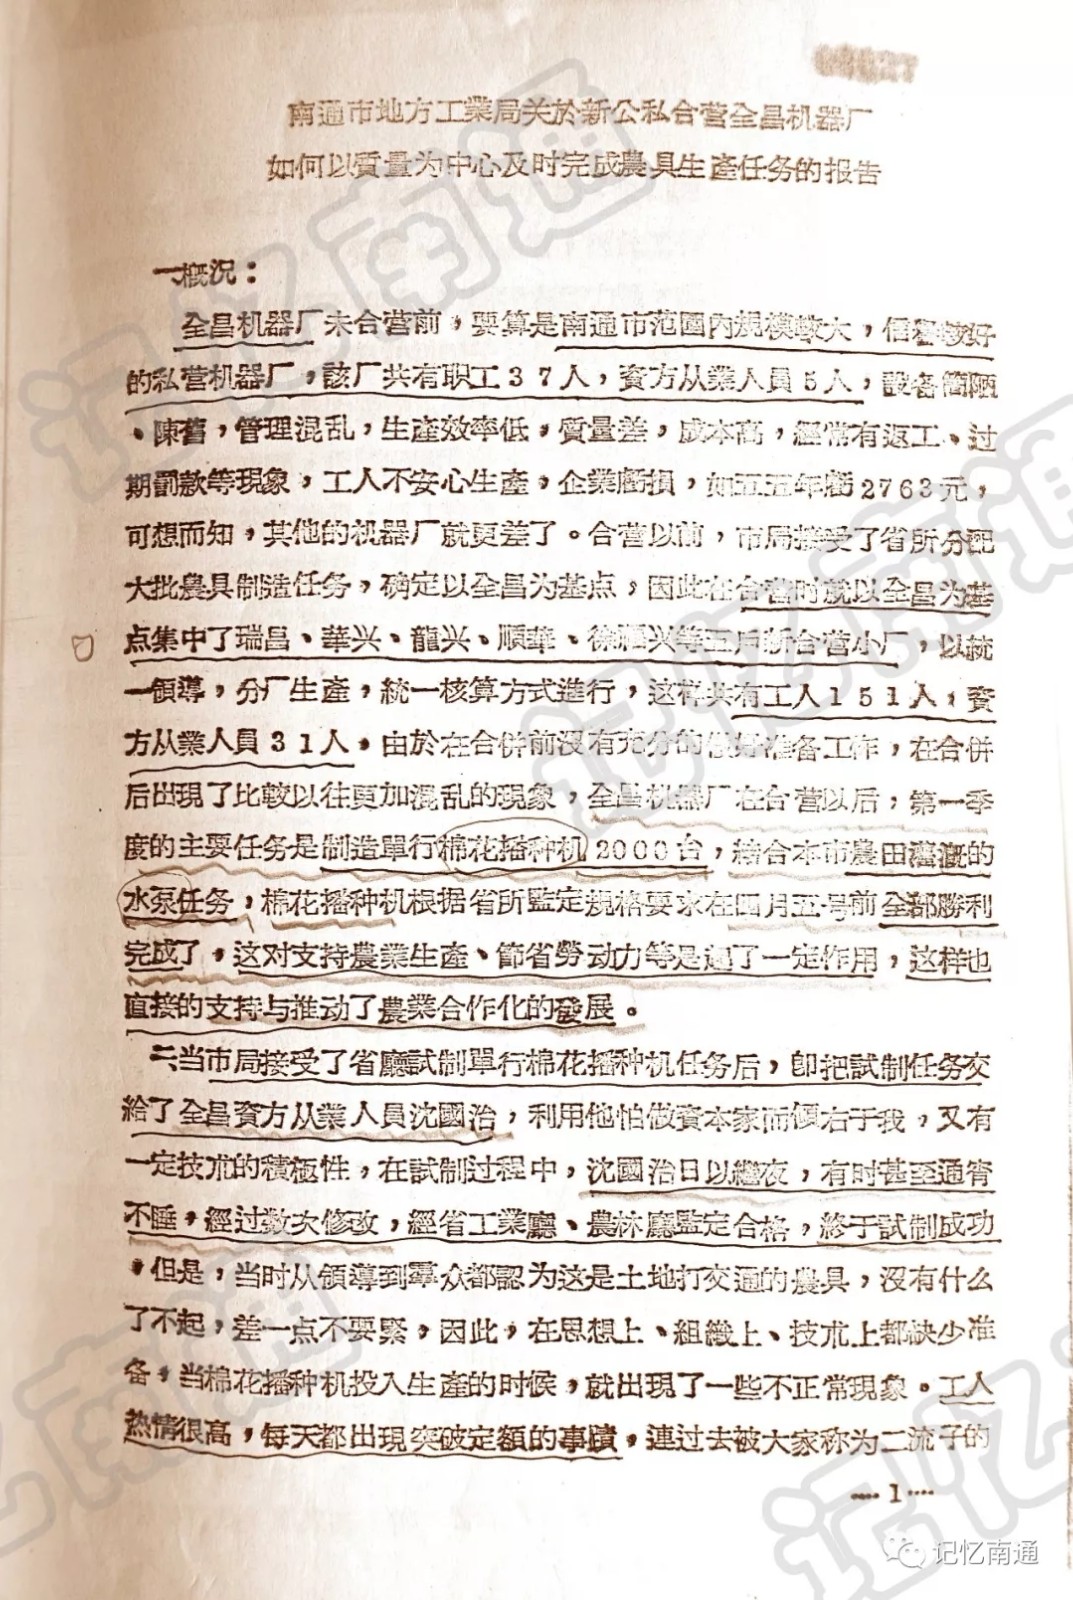 南通市地方工業局关於新公私合营全昌机器厂
如何以質量为中心及时完成農具生產任务的报告
一、概況：
全昌机器厂未合营前，要算是南通市范圍内規模較大，信譽較好
的私营机器厂，該厂共有职工37人，資方从業人員5人，設备簡陋
、陳舊，管理混乱，生產效率低，質量差，成本高，經常有返工、过
期罰款等現象，工人不安心生產，企業虧損，如五五年虧2763元，
可想而知，其他的机器厂就更差了。合营以前，市局接受了省所分配
大批農具制造任务，确定以全昌为基点，因此在合营时就以全昌为基
点集中了瑞昌、華兴、龍兴、順華、徐順兴等五戶新合营小厂，以統
一領導，分厂生產，統一核算方式進行，这样共有工人151人，資
方从業人員31人。由於在合併前没有充分的准备工作，在合併
后出現了比較以往更加混乱的現象，全昌机器厂在合营以后，第一季
度的主要任务是制造單行棉花播种机2000台，結合本市農田灌溉的
水泵任务，棉花播种机根据省所監定規格要求在四月五号前全部勝利
完成了，这对支持農業生產、節省勞动力等是起了一定作用，这样也
直接的支持与推动了農業合作化的發展。
二、当市局接受了省廳試制單行棉花播种机任务后，卽把試制任务交
給了全昌資方从業人員沈國治，利用他怕做資本家而傾右于我，又有
一定技朮的積極性，在試制过程中，沈國治日以繼夜，有时甚至通宵
不睡，經过数次修改，經省工業廳、農林廳監定合格，終于試制成功
。但是，当时从領導到羣众都認为这是土地打交通的農具，沒有什么
了不起，差一点不要緊，因此，在思想上、組織上、技朮上都缺少准
备，当棉花播种机投入生產的时候，就出現了一些不正常現象。工人
热情很高，每天都出現突破定額的事蹟，連过去被大家称为二流子的
····1····
记忆南通